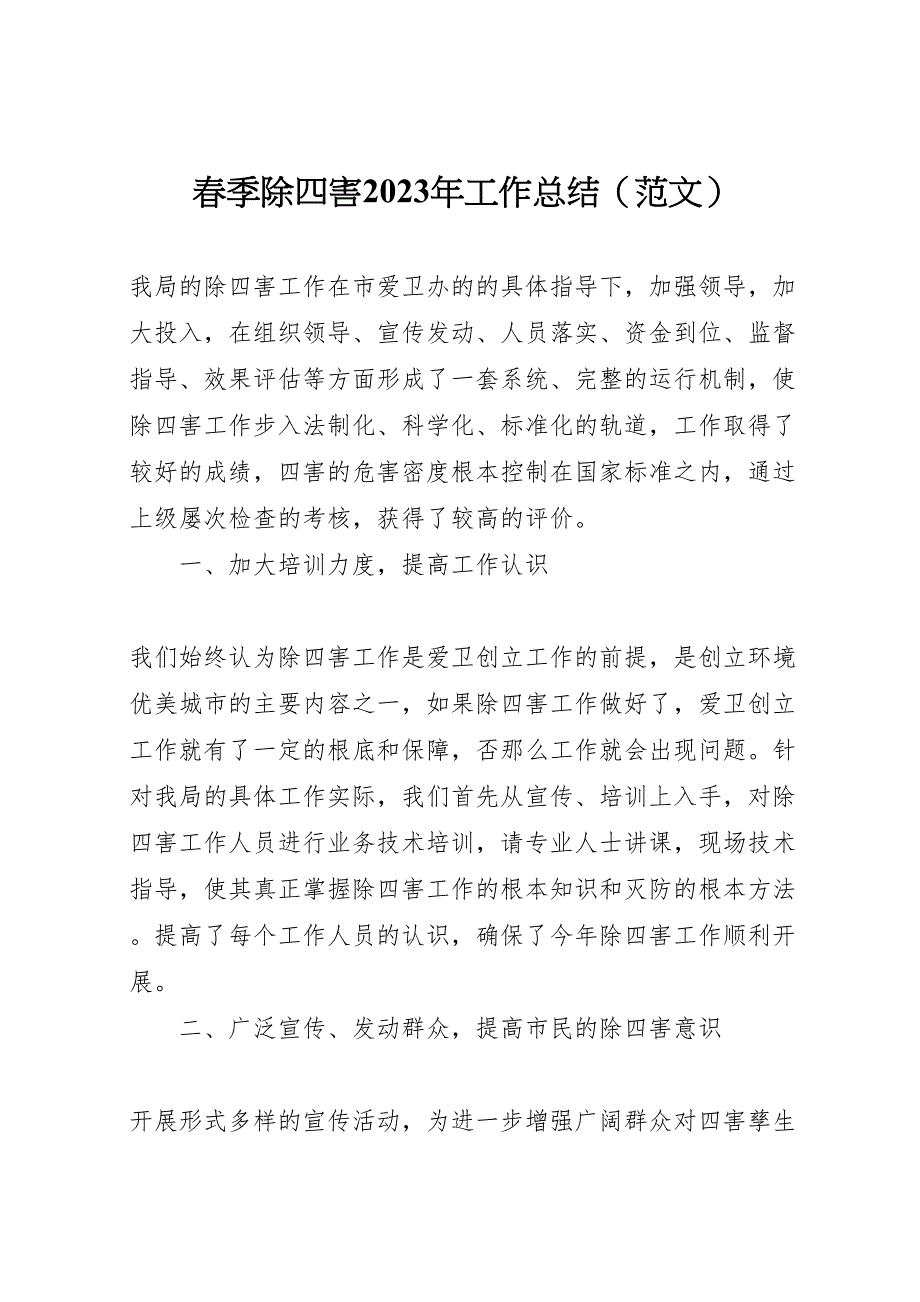 春季除四害2023年工作总结（范文）
我局的除四害工作在市爱卫办的的具体指导下，加强领导，加
大投入，在组织领导、宣传发动、人员落实、资金到位、监督
指导、效果评估等方面形成了一套系统、完整的运行机制，使
除四害工作步入法制化、科学化、标准化的轨道，工作取得了
较好的成绩，四害的危害密度根本控制在国家标准之内，通过
上级屡次检查的考核，获得了较高的评价。
一、加大培训力度，提高工作认识
我们始终认为除四害工作是爱卫创立工作的前提，是创立环境
优美城市的主要内容之一，如果除四害工作做好了，爱卫创立
工作就有了一定的根底和保障，否那么工作就会出现问题。针
对我局的具体工作实际，我们首先从宣传、培训上入手，对除
四害工作人员进行业务技术培训，请专业人士讲课，现场技术
指导，使其真正掌握除四害工作的根本知识和灭防的根本方法
。提高了每个工作人员的认识，确保了今年除四害工作顺利开
展。
二、广泛宣传、发动群众，提高市民的除四害意识
开展形式多样的宣传活动，为进一步增强广阔群众对四害孳生